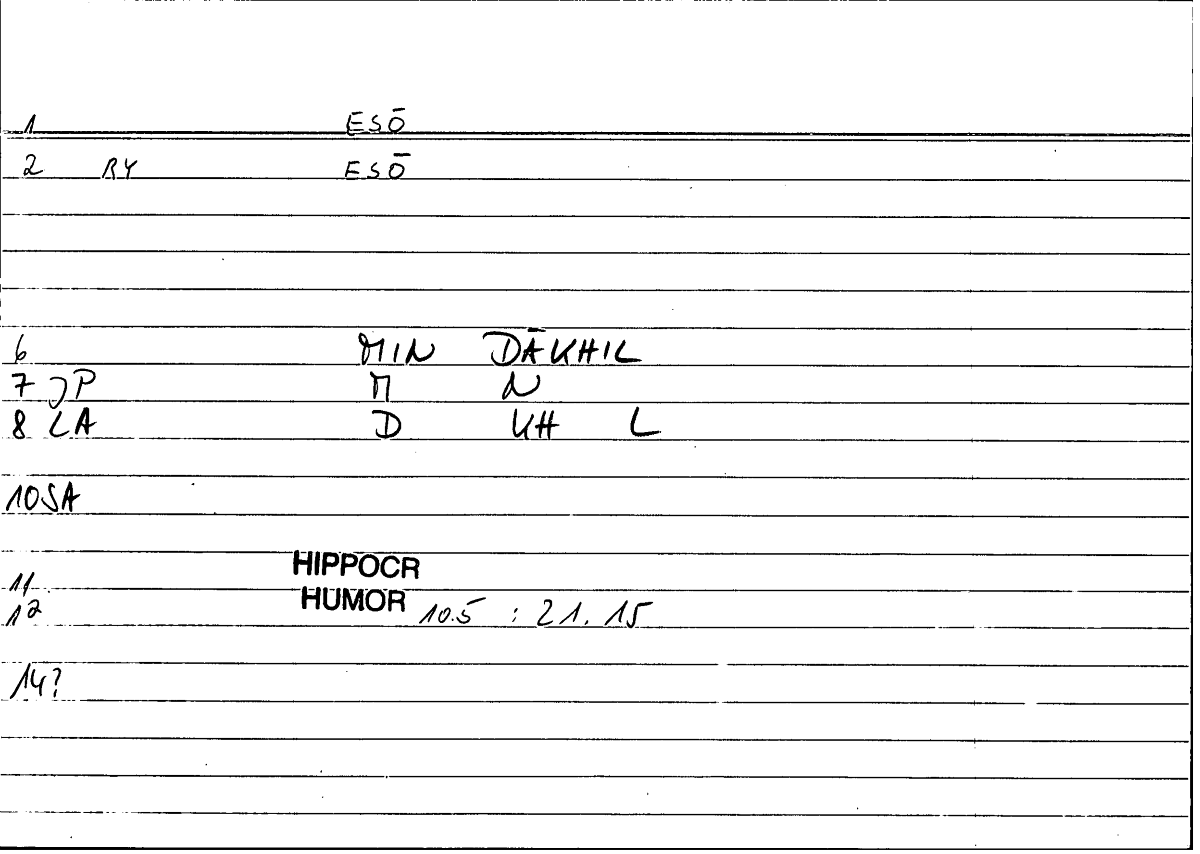 1 ESŌ
2 RY ESŌ
6 MIN DĀKHIL
7 JP M N
8 LA D KH L
10 SA
HIPPOCR
11
HUMOR
12 10.5 : 21.15
14?